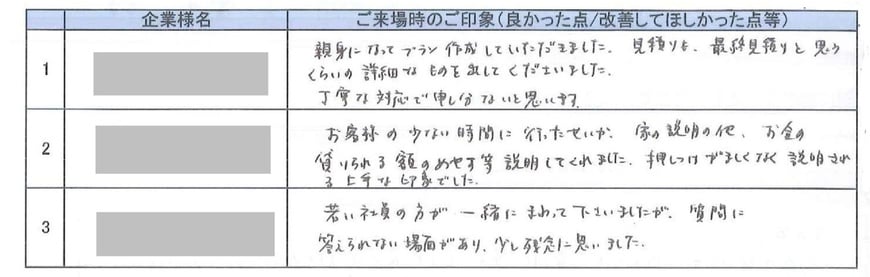 企業様名 ご来場時のご印象(良かった点/改善してほしかった点等)
1
親身になってプラン作成していただきました。見積りも、最終見積りと思う
くらいの詳細なものを出してくださいました。
丁寧な対応で申し分ないと思います。
2
お客様の少ない時間に行ったせいか、家の説明の他、お金の
借りられる額のめやす等説明してくれました。押しつけがましくなく説明され
る上手な印象でした。
3
若い社員の方が一緒にまわって下さいましたが、質問に
答えられない場面があり、少し残念に思いました。